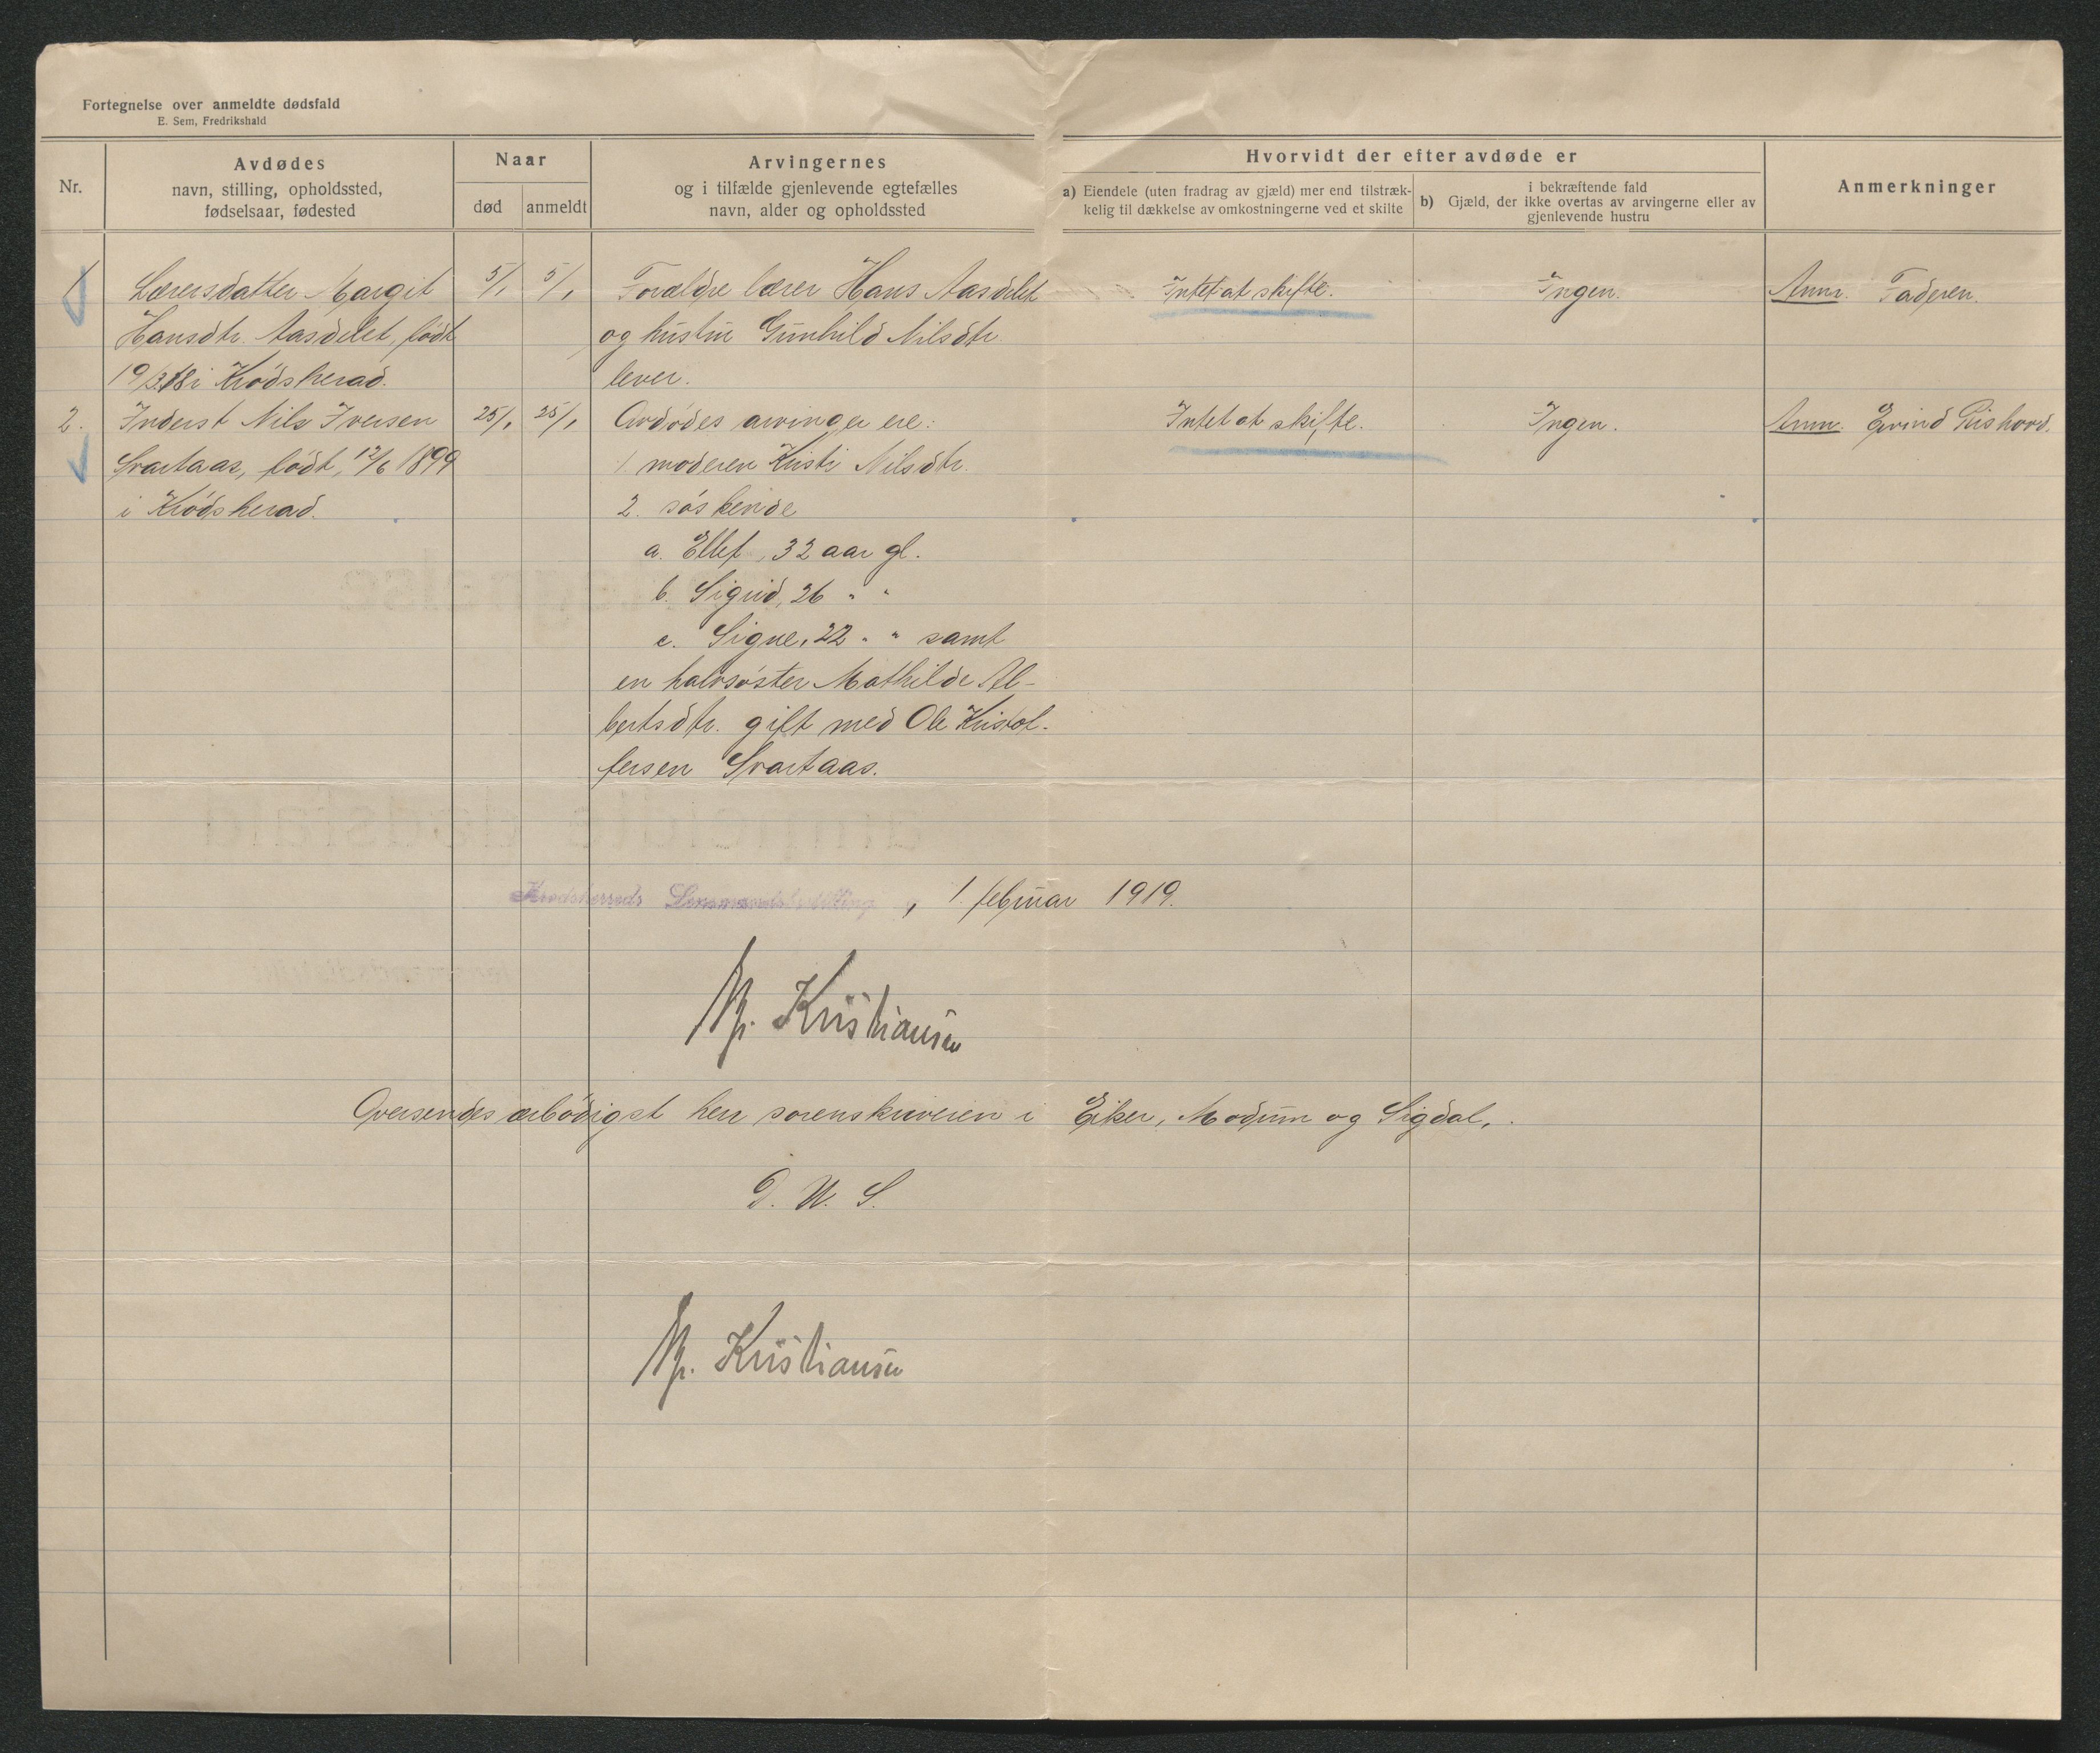 Fortegnelse over anmeldte dødsfald
E. Sem, Fredrikshald
Nr.
Avdødes
navn, stilling, opholdssted,
fødselsaar, fødested
Naar
død
anmeldt
Arvingernes
og i tilfælde gjenlevende egtefælles
navn, alder og opholdssted
Hvorvidt der efter avdøde er
a) Eiendele (uten fradrag av gjæld) mer end tilstræk-
kelig til dækkelse av omkostningerne ved et skifte
b)
i bekræftende fald
Gjæld, der ikke overtas av arvingerne eller av
gjenlevende hustru
Anmerkninger
1
Lærersdatter Margit
Hansdtr. Aasdelet, født
19/3.18 i Krødsherad.
5/1
5/1
Forældre lærer Hans Aasdelet
og hustru Gunhild Nilsdtr.
lever.
Intet at skifte.
Ingen.
Anm. Faderen.
2.
Inderst Nils Iversen
Svartaas, født 12/6 1899
i Krødsherad.
25/1
25/1
Avdødes arvinger ere:
1. moderen Kristi Nilsdtr.
2. søskende
a. Ellef, 32 aar gl.
b. Sigrid, 26 " "
c. Signe, 22 " " samt
en halvsøster Mathilde Al-
bertsdtr. gift med Ole Kristof-
fersen Svartaas.
Intet at skifte.
Ingen.
Anm. Eivind
Krødsherreds Lensmandsbestilling, 1. februar 1919.
Kristiansen
Oversendes ærbødigst herr sorenskriveren i Eiker, Modum og Sigdal.
D. U. S.
Kristiansen